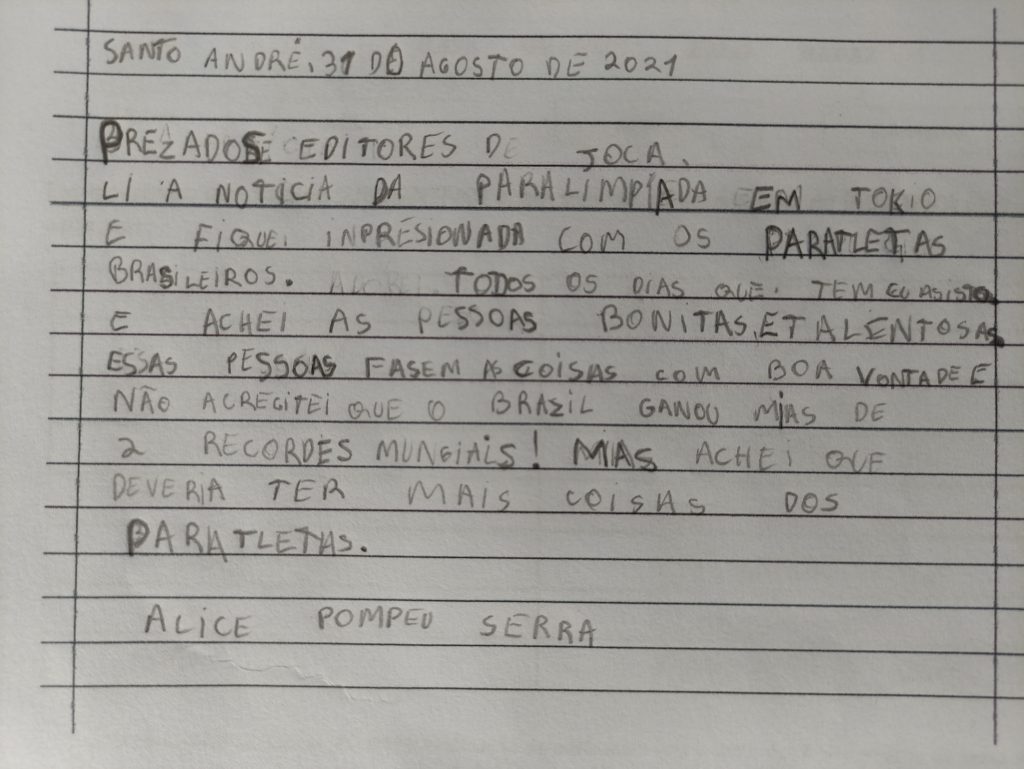 SANTO ANDRÉ, 31 DO AGOSTO DE 2021
PREZADOS EDITORES DE JOCA.
LI A NOTICIA DA PARALIMPÍADA EM TOKIO
E FIQUEI INPRESIONADA COM OS PARATLETAS
BRASILEIROS. TODOS OS DIAS QUE TEM EU ASISTO
E ACHEI AS PESSOAS BONITAS, E TALENTOSAS
ESSAS PESSOAS FASEM AS COISAS COM BOA VONTADE E
NÃO ACREGITEI QUE O BRAZIL GANOU MIAS DE
2 RECORDES MUNGIAIS! MAS ACHEI QUE
DEVERIA TER MAIS COISAS DOS
PARATLETAS.
ALICE POMPEU SERRA